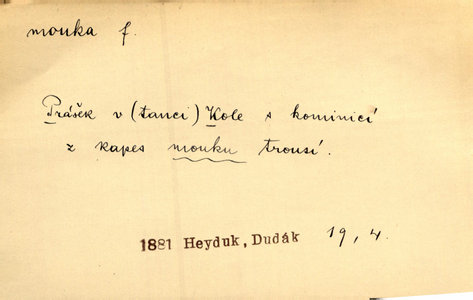 mouka f.
Prášek v (tanci) Kole s kominicí
z kapes mouku trousí.
1881 Heyduk, Dudák 19, 4.